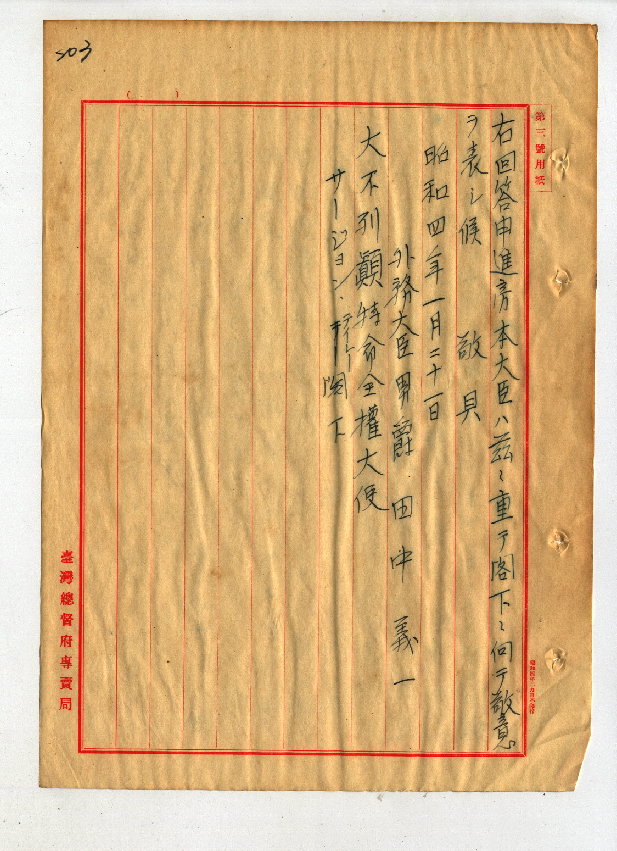 503
第三號用紙
右回答申進旁本大臣ハ茲ニ重テ閣下ニ向テ敬意
ヲ表シ候　敬具
昭和四年一月二十一日
外務大臣男爵　田中義一
大不列顛特命全權大使
サー・ジョン・ティレー閣下
臺灣總督府專賣局